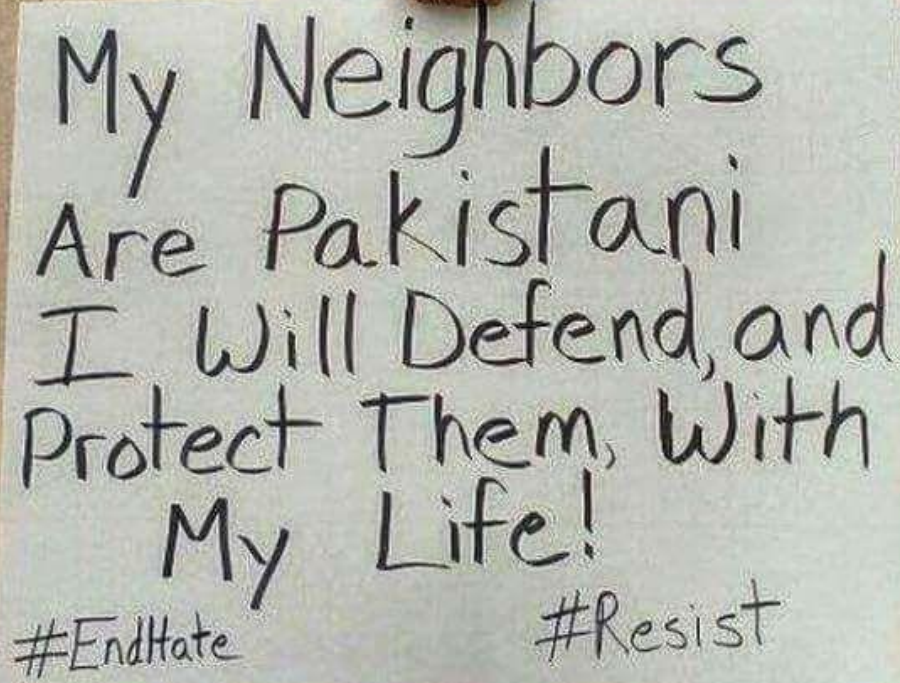 My Neighbors
Are Pakistani
I Will Defend, and
Protect Them, With
My Life!
#EndHate #Resist